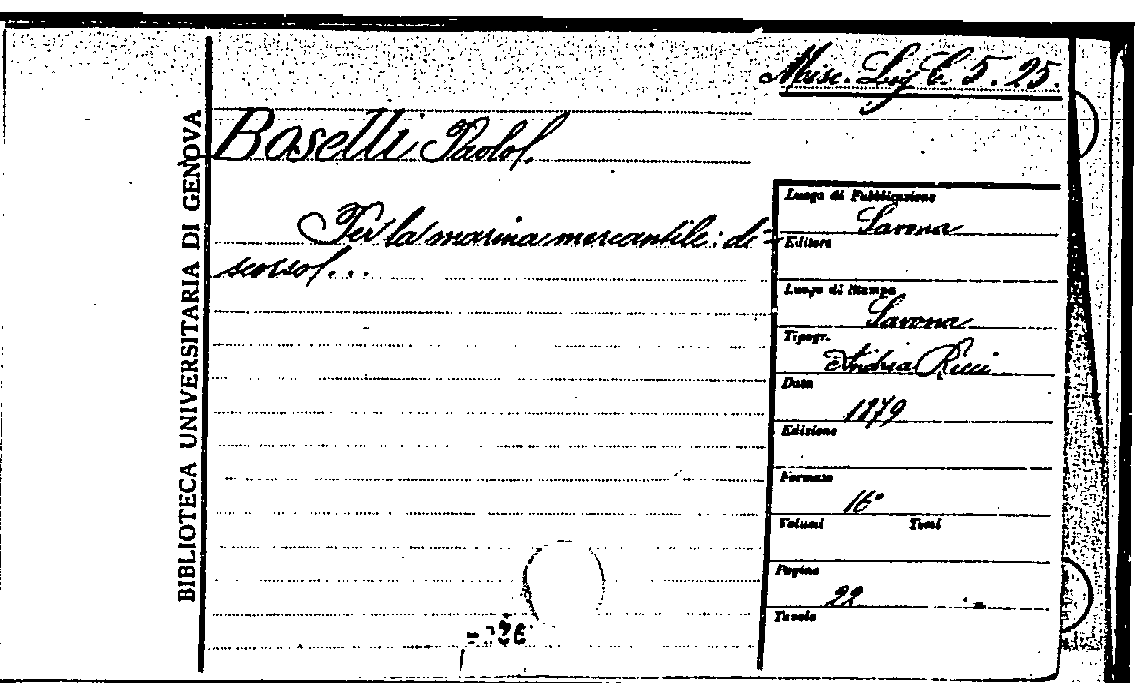 Misc. Lig C. 5. 25.
Boselli Paolo
BIBLIOTECA UNIVERSITARIA DI GENOVA
Per la marina mercantile: di-
scorso...
Luogo di Pubblicazione
Savona
Editore
Luogo di Stampa
Savona
Tipogr.
Andrea Ricci
Data
1879
Edizione
Formato
16°
Volumi Tomi
Pagine
22
Tavole